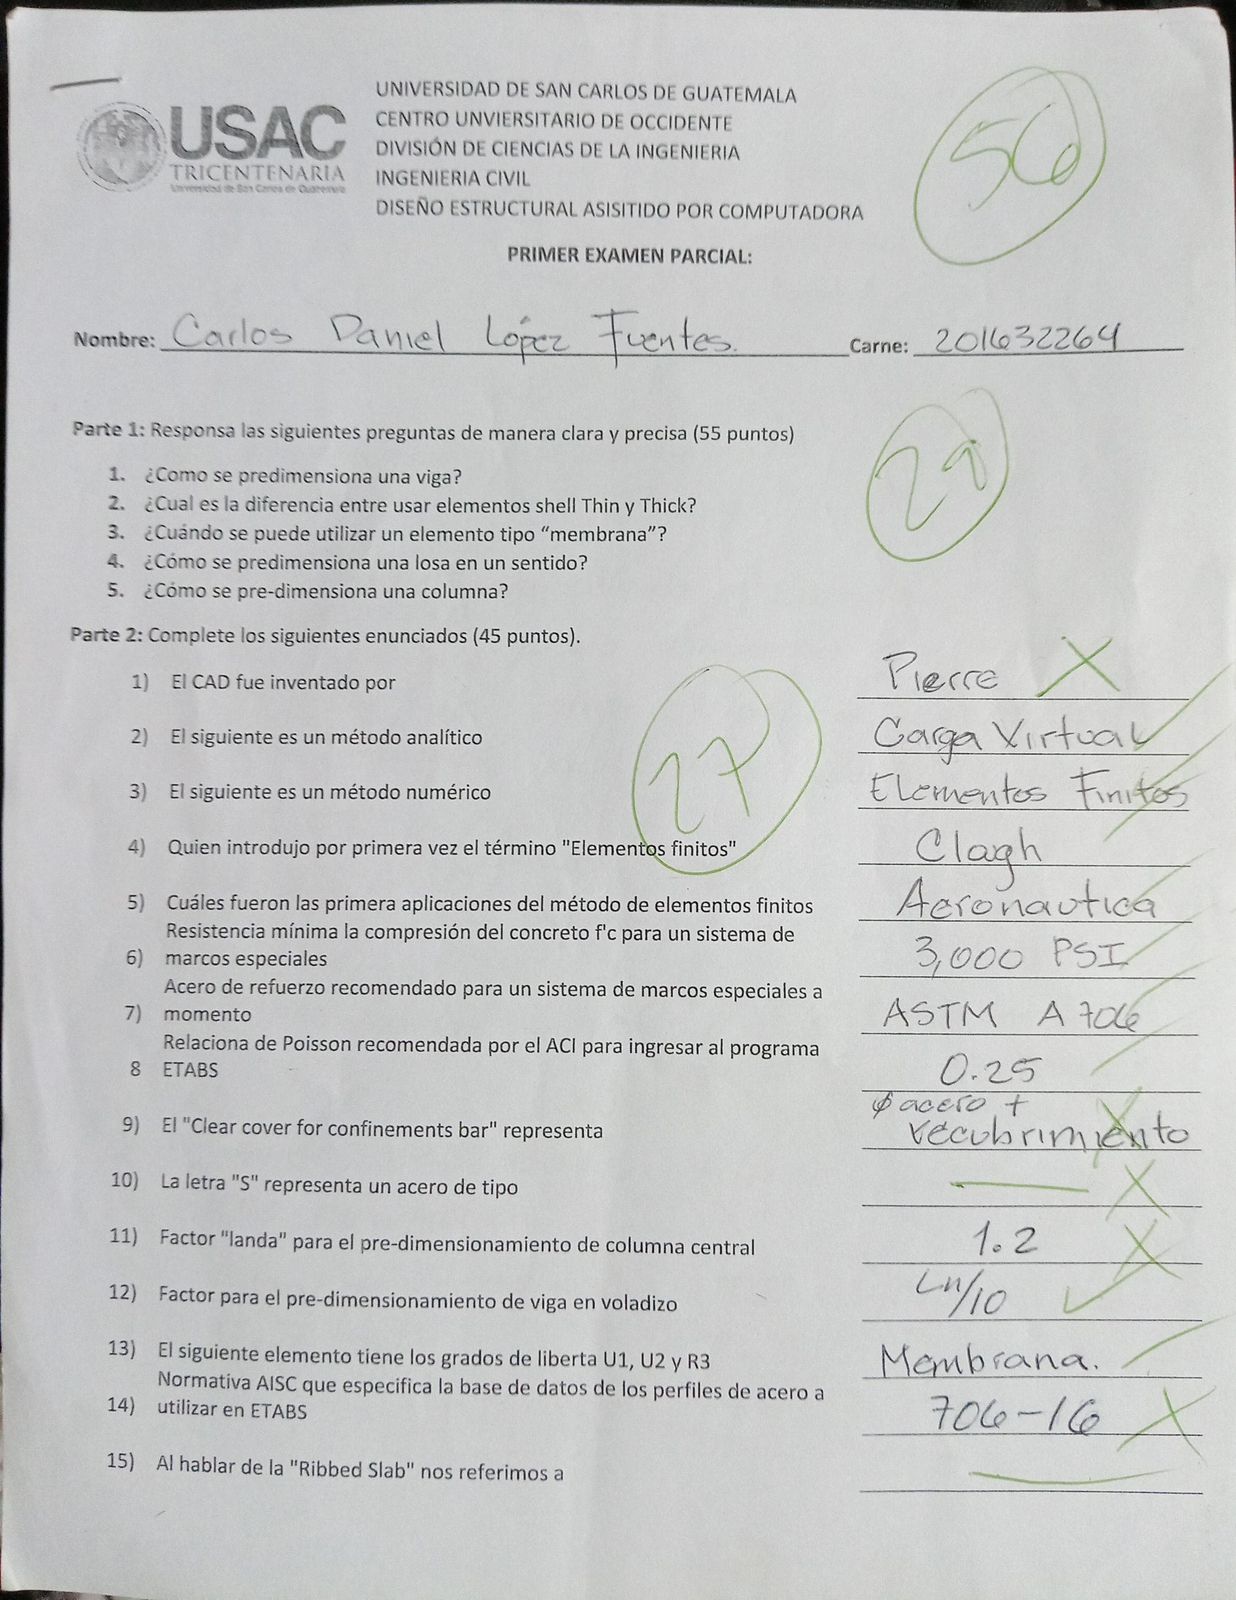 USAC
TRICENTENARIA
Universidad de San Carlos de Guatemala
UNIVERSIDAD DE SAN CARLOS DE GUATEMALA
CENTRO UNVIERSITARIO DE OCCIDENTE
DIVISIÓN DE CIENCIAS DE LA INGENIERIA
INGENIERIA CIVIL
DISEÑO ESTRUCTURAL ASISITIDO POR COMPUTADORA
56
PRIMER EXAMEN PARCIAL:
Nombre: Carlos Daniel López Fuentes. Carne: 201632264
Parte 1: Responsa las siguientes preguntas de manera clara y precisa (55 puntos)
1. ¿Como se predimensiona una viga?
2. ¿Cual es la diferencia entre usar elementos shell Thin y Thick?
3. ¿Cuándo se puede utilizar un elemento tipo “membrana”?
4. ¿Cómo se predimensiona una losa en un sentido?
5. ¿Cómo se pre-dimensiona una columna?
29
Parte 2: Complete los siguientes enunciados (45 puntos).
27
1) El CAD fue inventado por Pierre
2) El siguiente es un método analítico Carga Virtual
3) El siguiente es un método numérico Elementos Finitos
4) Quien introdujo por primera vez el término "Elementos finitos" Clagh
5) Cuáles fueron las primera aplicaciones del método de elementos finitos Aeronautica
Resistencia mínima la compresión del concreto f'c para un sistema de
6) marcos especiales 3,000 PSI
Acero de refuerzo recomendado para un sistema de marcos especiales a
7) momento ASTM A 706
Relaciona de Poisson recomendada por el ACI para ingresar al programa
8 ETABS 0.25
φ acero +
9) El "Clear cover for confinements bar" representa recubrimiento
10) La letra "S" representa un acero de tipo
11) Factor "landa" para el pre-dimensionamiento de columna central 1.2
12) Factor para el pre-dimensionamiento de viga en voladizo Ln/10
13) El siguiente elemento tiene los grados de liberta U1, U2 y R3 Membrana.
Normativa AISC que especifica la base de datos de los perfiles de acero a
14) utilizar en ETABS 706-16
15) Al hablar de la "Ribbed Slab" nos referimos a